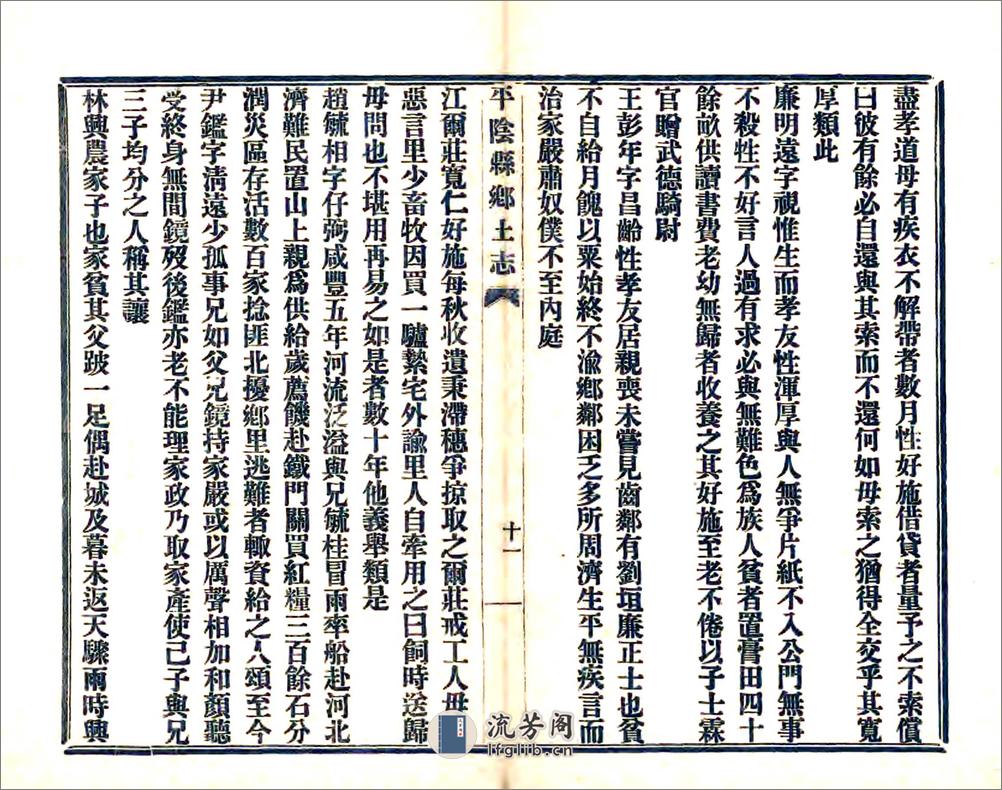 盡孝道母有疾衣不解帶者數月性好施借貸者量予之不索償
曰彼有餘必自還與其索而不還何如毋索之猶得全交乎其寬
厚類此
廉明遠字視惟生而孝友性渾厚與人無爭片紙不入公門無事
不殺牲不好言人過有求必與無難色爲族人貧者置膏田四十
餘畝供讀書費老幼無歸者收養之其好施至老不倦以子士霖
官贈武德騎尉
王彭年字昌齡性孝友居親喪未嘗見齒鄰有劉垣廉正士也貧
不自給月餽以粟始終不渝鄉鄰困乏多所周濟生平無疾言而
治家嚴肅奴僕不至內庭
平陰縣鄉土志 十一
江爾莊寬仁好施每秋收遺秉滯穗爭掠取之爾莊戒工人毋
惡言里少畜牧因買一驢縶宅外諭里人自牽用之曰飼時送歸
毋問也不堪用再易之如是者數十年他義舉類是
趙毓相字仔弼咸豐五年河流泛溢與兄毓桂冒雨率船赴河北
濟難民置山上親爲供給歲薦饑赴鐵門關買紅糧三百餘石分
潤災區存活數百家捻匪北擾鄉里逃難者輙資給之人頌至今
尹鑑字淸遠少孤事兄如父兄鏡持家嚴或以厲聲相加和顏聽
受終身無間鏡歿後鑑亦老不能理家政乃取家產使己子與兄
三子均分之人稱其讓
林興農家子也家貧其父跛一足偶赴城及暮未返天驟雨時興
流芳阁
lfglib.cn